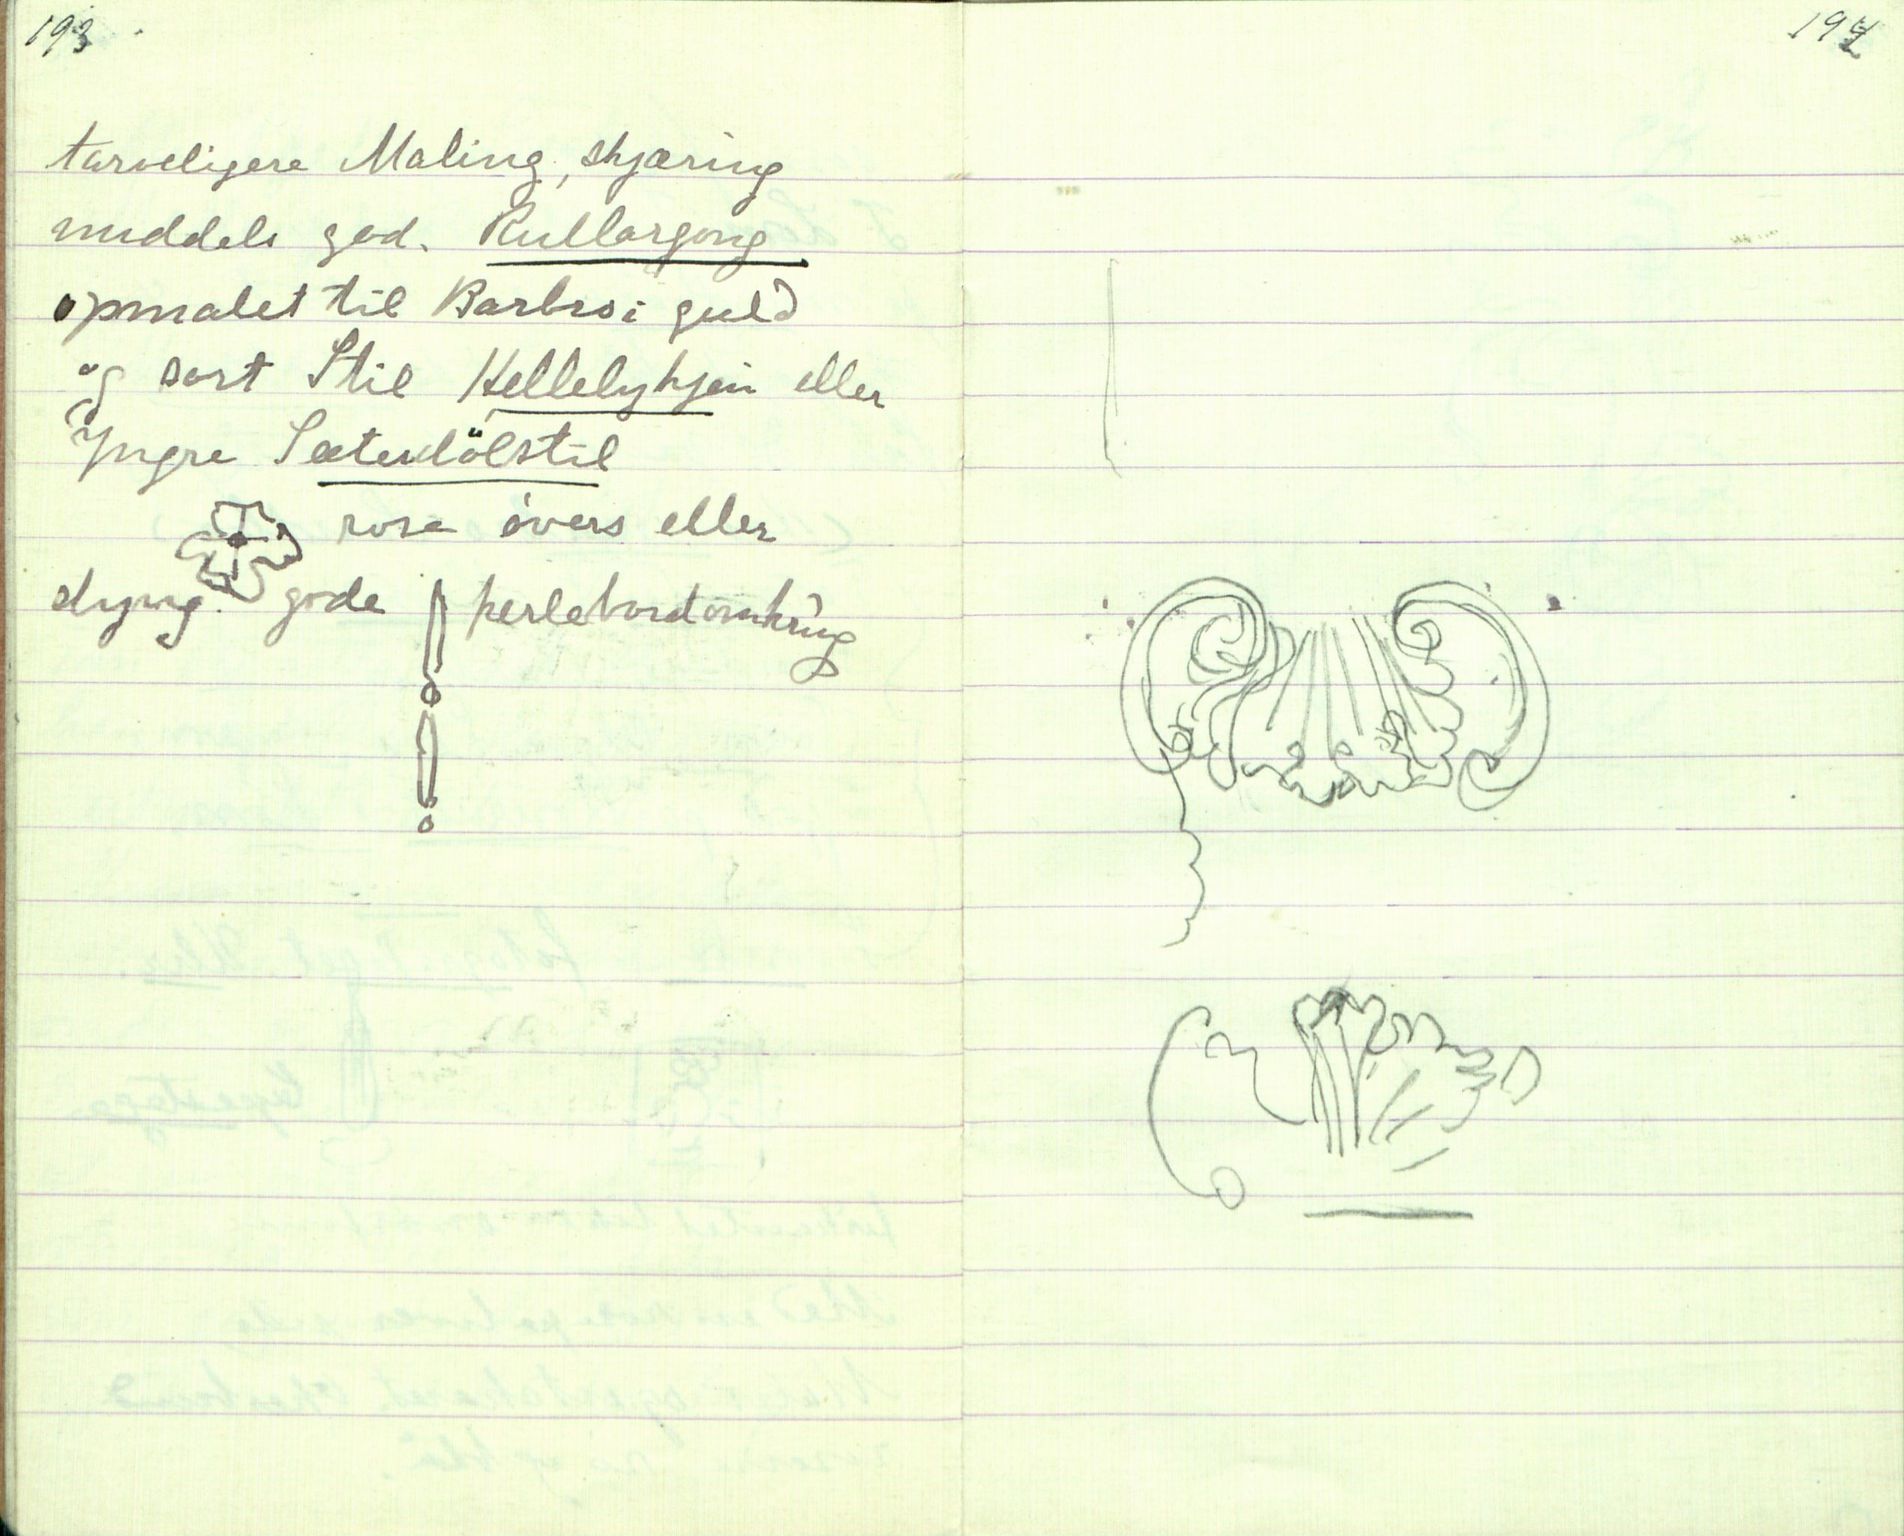 193
tarveligere Maling, skjæring
middels god. Rullargong
opmalet til Barbro i guld
og sort Stil Hellelykjen eller
Yngre Sæterdölstil
rose óvers eller
gode perlebord omkring
194